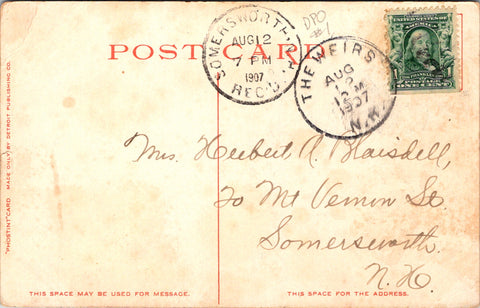 DPO
POST CARD
SOMERSWORTH, N.H.
AUG 12
7 PM
1907
REC'D.
THE WEIRS
AUG
12
M
1907
N.H.
UNITED STATES OF AMERICA
FRANKLIN
POSTAGE
ONE CENT
Mrs. Herbert A. Blaisdell,
70 Mt Vernon St.
Somersworth.
N.H.
"PHOSTINT" CARD MADE ONLY BY DETROIT PUBLISHING CO.
THIS SPACE MAY BE USED FOR MESSAGE.
THIS SPACE FOR THE ADDRESS.